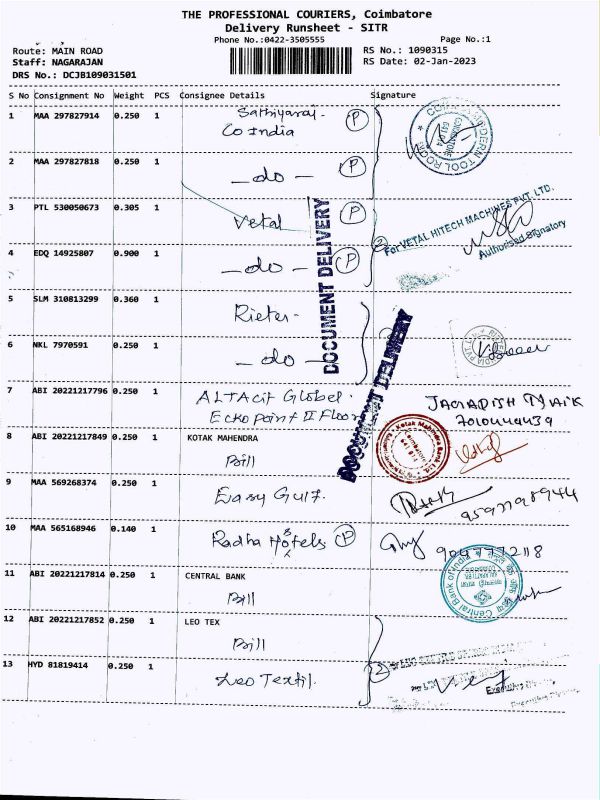 THE PROFESSIONAL COURIERS, Coimbatore
Delivery Runsheet - SITR
Phone No.:0422-3505555 Page No.:1
Route: MAIN ROAD RS No.: 1090315
Staff: NAGARAJAN RS Date: 02-Jan-2023
DRS No.: DCJB109031501
S No Consignment No Weight PCS Consignee Details Signature
1 MAA 297827914 0.250 1 Sathiyaraj - P
Co India
2 MAA 297827818 0.250 1 - do - P
3 PTL 530050673 0.305 1 Vetal P
4 EDQ 14925807 0.900 1 - do - P
For VETAL HITECH MACHINES PVT. LTD.
Authorised Signatory
DOCUMENT DELIVERY
5 SLM 310813299 0.360 1 Rieter-
6 NKL 7970591 0.250 1 - do -
DOCUMENT DELIVERY
7 ABI 20221217796 0.250 1 ALTAcit Global.
Ecko Point II Floor
8 ABI 20221217849 0.250 1 KOTAK MAHENDRA
Bill
Kotak Mahindra Bank Ltd.
9 MAA 569268374 0.250 1 Easy Gulf.
10 MAA 565168946 0.140 1 Radha Hotels P
11 ABI 20221217814 0.250 1 CENTRAL BANK
Bill
Central Bank of India
12 ABI 20221217852 0.250 1 LEO TEX
Bill
13 HYD 81819414 0.250 1 Leo Textil.